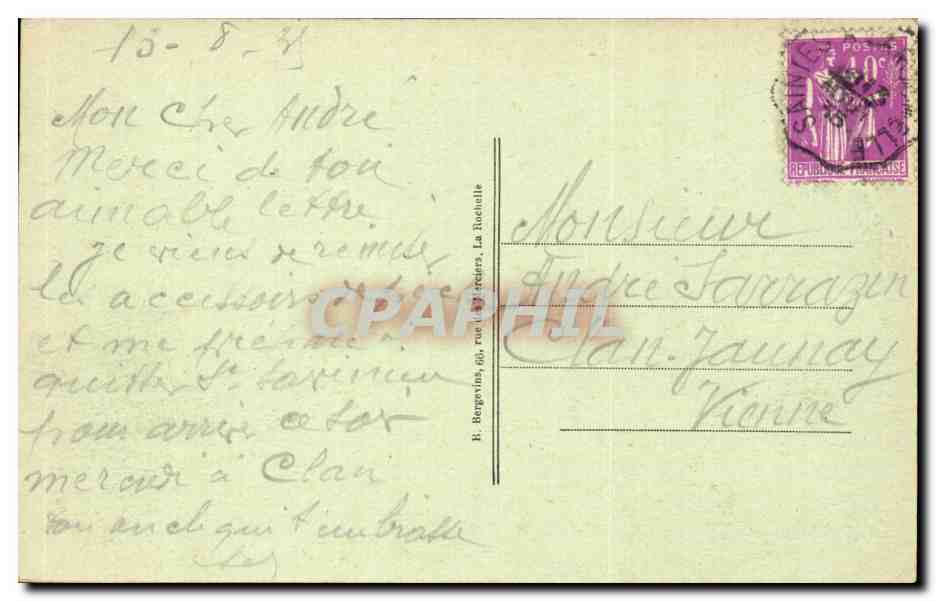 13-8-35
Mon Cher André
Merci de ton
aimable lettre
je viens de remiser
les accessoires
et me
quitter St
pour arriver ce soir
mercredi à Clan
ton oncle qui t'embrasse
R. Bergevins, 66, rue des Merciers, La Rochelle
POSTES
40c
REPUBLIQUE FRANÇAISE
Monsieur
André Sarrazin
Clan-Jaunay
Vienne
CPAPHIL